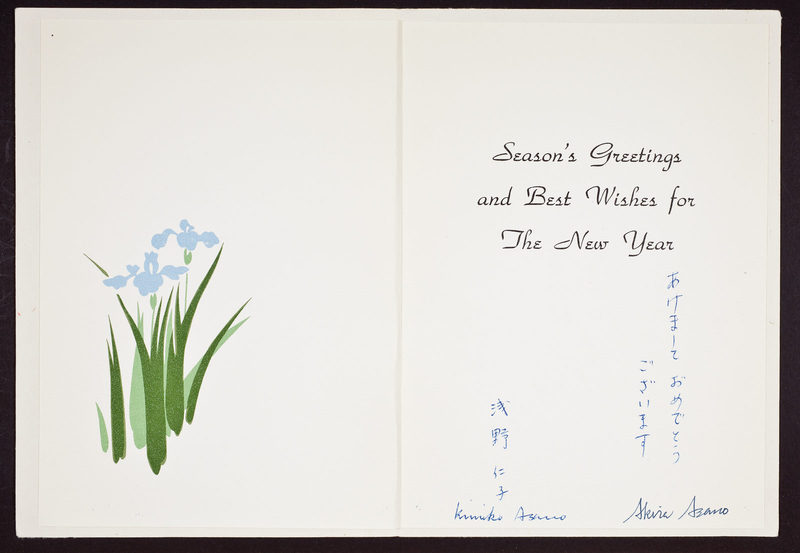 Season's Greetings
and Best Wishes for
The New Year
あけまして おめでとう
ございます
浅野 仁子
Kimiko Asano
Akira Asano